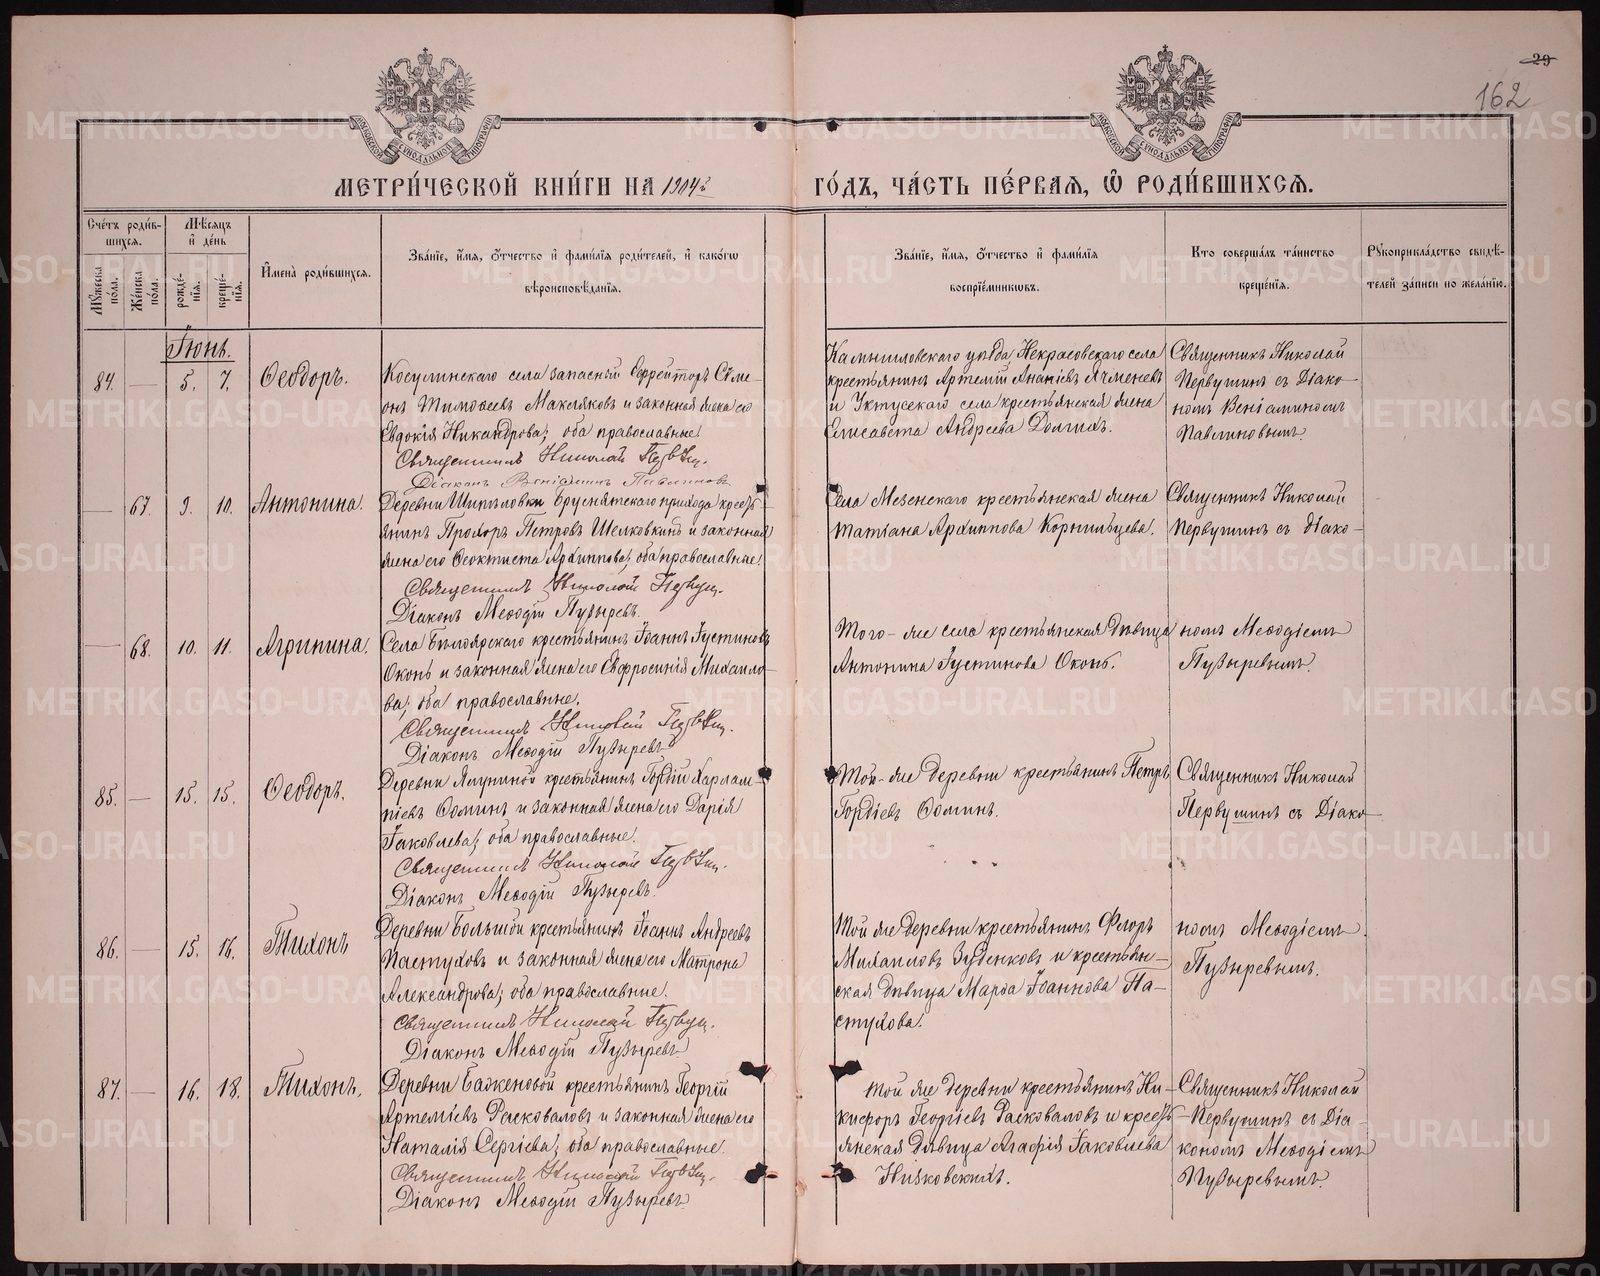 29
162
МОСКОВСКОЙ СѴНОДАЛЬНОЙ ТИПОГРАФІИ
МОСКОВСКОЙ СѴНОДАЛЬНОЙ ТИПОГРАФІИ
МЕТРИ́ЧЕСКОЙ КНИ́ГИ НА 1904й ГО́ДЪ, ЧА́СТЬ ПЕ́РВАЯ, Ѡ РОДИ́ВШИХСЯ.
Сче́тъ роди́в-
шихся.
Мꙋжеска по́ла.
Же́нска по́ла.
Мѣ́сяцъ
и҆ де́нь
рожде́-
нїя.
креще́-
нїя.
И҆мена̀ роди́вшихся.
Зва́нїе, и҆́мя, ѻ҆́тчество и҆ фами́лїя роди́телей, и҆ како́гѡ
вѣроисповѣ́данїя.
Зва́нїе, и҆́мя, ѻ҆́тчество и҆ фами́лїя
воспрїе́мникѡвъ.
Кто̀ соверша́лъ та́инство
креще́нїя.
Рꙋкоприкла́дство свидѣ́-
телей за́писи по жела́нїю.
Іюнь.
84. — 5. 7. Ѳеодоръ.
Косулинскаго села запасный Ефрейторъ Сѵме-
онъ Тимоѳеевъ Макляковъ и законная жена его
Евдокія Никандрова; оба православные.
Священникъ Николай Первуш.
Діаконъ Веніаминъ Павлиновъ
Камышловскаго уѣзда, Некрасовскаго села
крестьянинъ Артемій Ананіевъ Ячменевъ
и Уктусскаго села крестьянская жена
Елисавета Андреева Долгихъ.
Священникъ Николай
Первушинъ съ Діако-
номъ Веніаминомъ
Павлиновымъ.
— 67. 9. 10. Антонина.
Деревни Шипиловки Бруснятскаго прихода кресть-
янинъ Прохоръ Петровъ Шелковкинъ и законная
жена его Ѳеоктиста Архиппова; оба православные.
Священникъ Николай Первуш.
Діаконъ Меѳодій Пузыревъ.
Села Мезенскаго крестьянская жена
Татіана Архиппова Корнильцева.
Священникъ Николай
Первушинъ съ Діако-
— 68. 10. 11. Агрипина.
Села Бѣлоярскаго крестьянинъ Іоаннъ Іустиновъ
Оконъ и законная жена его Евфросинія Михаило-
ва; оба православные.
Священникъ Николай Первуш.
Діаконъ Меѳодій Пузыревъ
Того-же села крестьянская дѣвица
Антонина Іустинова Оконъ.
номъ Меѳодіемъ
Пузыревымъ.
85. — 15. 15. Ѳеодоръ.
Деревни Ялуниной крестьянинъ Гордій Харлам-
піевъ Ѳоминъ и законная жена его Дарія
Іаковлева; оба православные.
Священникъ Николай Первуш.
Діаконъ Меѳодій Пузыревъ.
Той-же деревни крестьянинъ Петръ
Гордіевъ Ѳоминъ.
Священникъ Николай
Первушинъ съ Діако-
86. — 15. 16. Тихонъ
Деревни Большой крестьянинъ Іоаннъ Андреевъ
Пастуховъ и законная жена его Матрона
Александрова; оба православные.
Священникъ Николай Первуш.
Діаконъ Меѳодій Пузыревъ
Той же деревни крестьянинъ Флоръ
Михаиловъ Зубенковъ и крестьян-
ская дѣвица Марѳа Іоаннова Па-
стухова.
номъ Меѳодіемъ
Пузыревымъ.
87. — 16. 18. Тихонъ.
Деревни Баженовой крестьянинъ Георгій
Артеміевъ Расковаловъ и законная жена его
Наталія Сергіева; оба православные.
Священникъ Николай Первуш.
Діаконъ Меѳодій Пузыревъ
Той же деревни крестьянинъ Ни-
кифоръ Георгіевъ Расковаловъ и кресть-
янская дѣвица Агафія Іаковлева
Низковскихъ.
Священникъ Николай
Первушинъ съ Діа-
кономъ Меѳодіемъ
Пузыревымъ.
METRIKI.GASO-URAL.RU